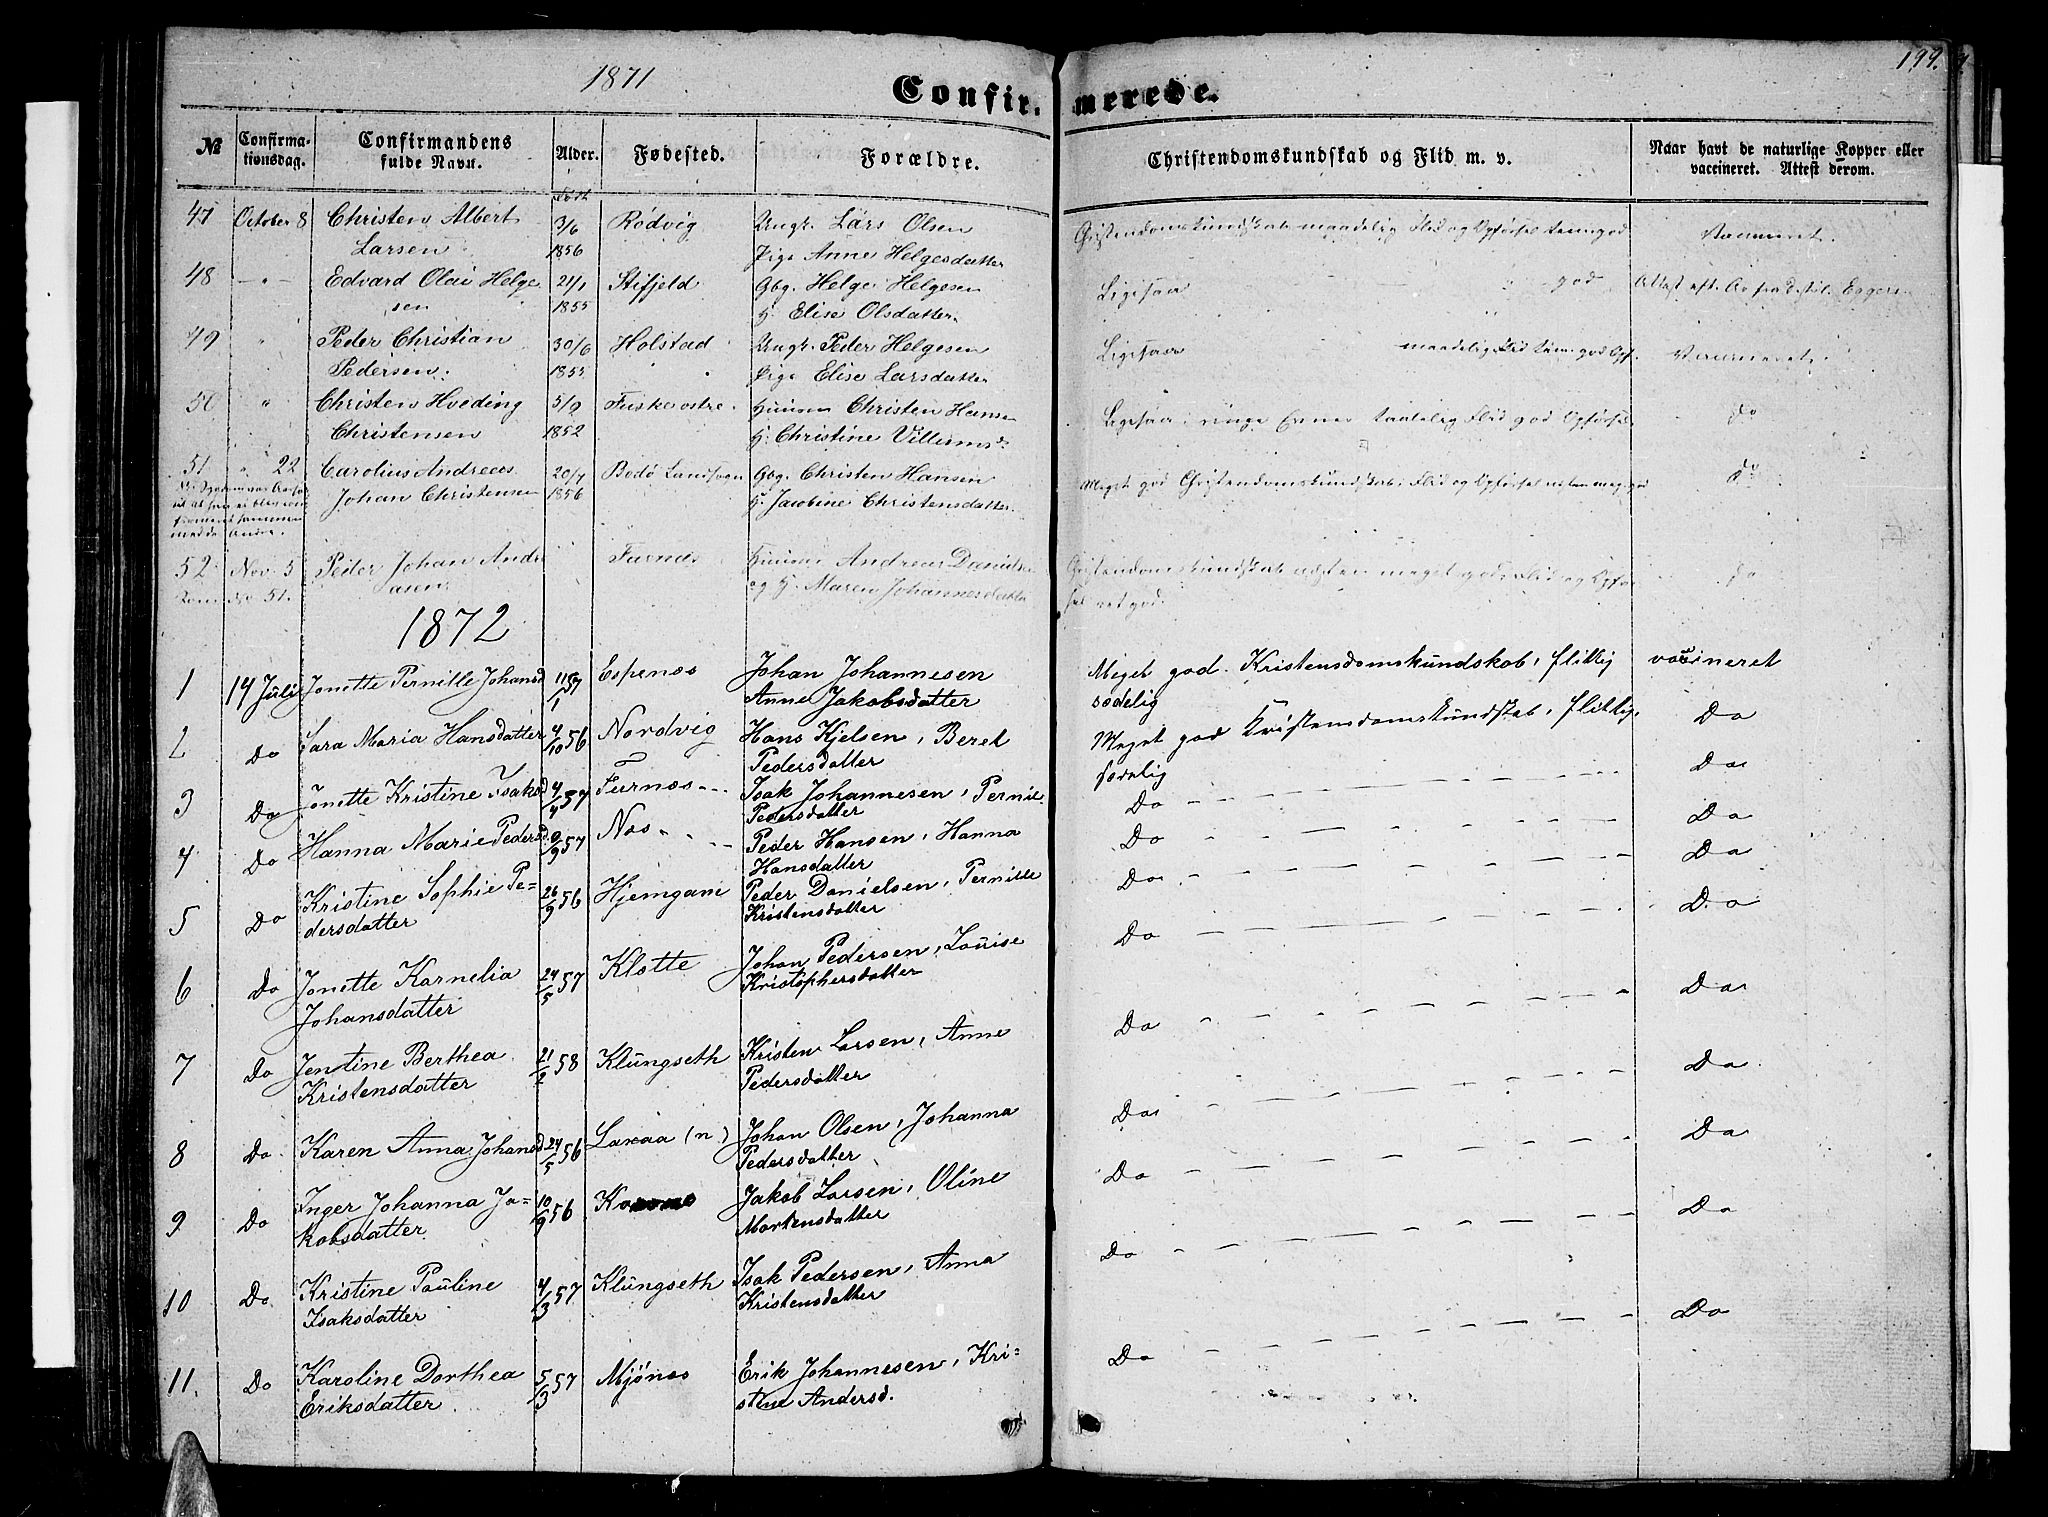 1871
199.
Confirmerede.
№ Confirmationsdag. Confirmandens fulde Navn. Alder. Fødested. Forældre. Christendomskundskab og Flid m. v. Naar havt de naturlige Kopper eller vaccineret. Attest derom.
født
47 October 8 Christen Albert 3/6 Rødvig Ungk. Lars Olsen Christendomskundskab maadelig Flid og Opførsel temg god Vaccineret.
Larsen 1856 Pige Anne Helgesdatter
48 - " - Edvard Olai Helge 21/1 Stifjeld Gbg. Helge Helgesen Ligesaa god Attest
sen 1855 H. Elise Olsdatter
49 " Peder Christian 30/6 Holstad Ungk. Peder Helgesen Ligesaa maadelig Flid tem. god Opf. Vaccineret.
Pedersen. 1855 Pige Elise Larsdatter
50 " Christen Hveding 5/9 Fuske østre Huusm Christen Hansen Ligesaa ringe Evner taalelig Flid god Opførsel do
Christensen 1852 H. Christine Villumsd.
51 " 22 Carolius Andreas 20/7 Bodø Landsogn Gbg. Christen Hansen Meget god Christendomskundskab, Flid og Opførsel meg. god do
Johan Christensen 1856 H. Jacobine Christensdatter.
sammen
med de Andre.
52 Nov. 5 Peder Johan Andre Furnes Huusm Andreas Danielsen Christendomskundskab næsten meget god Flid og Opfør do
Som No 51. asen og H. Maren Johannesdatter sel god.
1872
1 14 Juli Jonette Pernille Johansd 11/1 57 Espenes Johan Johannesen Meget god Kristensdomskundskab, flittig vaccineret
Anne Jakobsdatter sædelig
2 Do Sara Maria Hansdatter 4/10 56 Nordvig Hans Kjelsen, Beret Meget god Kristensdomskundskab, flittig, Do
Pedersdatter sædelig
3 Do Jonette Kristine Isaksd 4/4 57 Furnæs Isak Johannesen, Pernil. Do Do
Pedersdatter
4 Do Hanna Marie Pedersd. 9/9 57 Næs Peder Hansen, Hanna Do Do
Hansdatter
5 Do Kristine Sophie Pe= 26/9 56 Hjemgam Peder Danielsen, Pernille Do Do
dersdatter Kristensdatter
6 Do Jonette Kornelia 24/5 57 Kløtte Johan Pedersen, Louise Do Do
Johansdatter Kristophersdatter
7 Do Jentine Berthea 21/2 58 Klungseth Kristen Larsen, Anne Do Do
Kristensdatter Pedersdatter
8 Do Karen Anna Johansd 24/5 56 Laxaa (n) Johan Olsen, Johanna Do Do
Pedersdatter
9 Do Inger Johanna Ja= 10/9 56 Jakob Larsen, Oline Do Do
kobsdatter Mortensdatter
10 Do Kristine Pauline 4/3 57 Klungseth Isak Pedersen, Anna Do Do
Isaksdatter Kristensdatter
11. Do Karoline Dorthea 5/3 57 Mjønæs Erik Johannesen, Kri= Do Do
Eriksdatter stine Andersd.